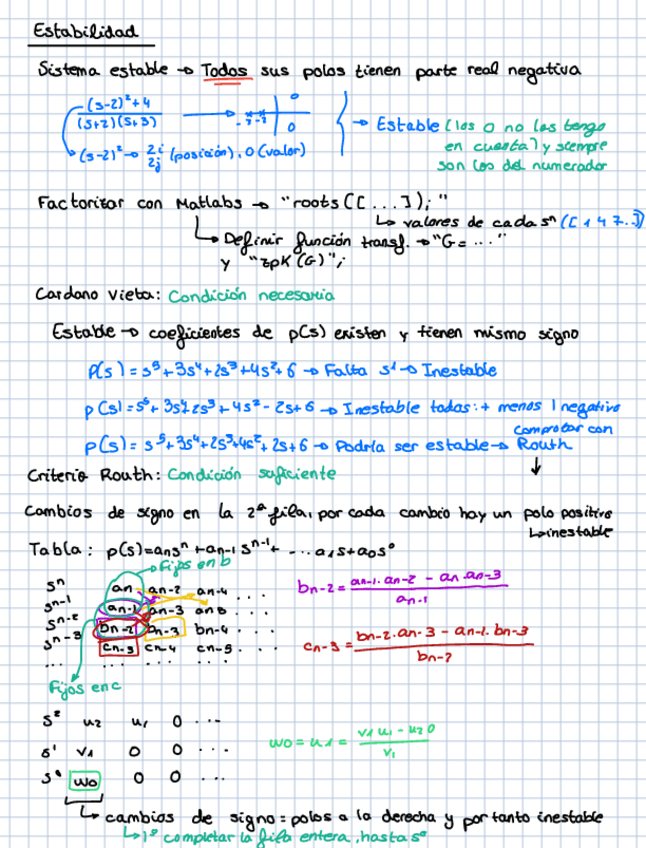 Estabilidad
Sistema estable → Todos sus polos tienen parte real negativa
(s-2)²+4
(s+2)(s+3)
-3 -2
(s-2)² → 2i 2j (posición), 0 (valor)
→ Estable (los 0 no los tengo
en cuenta) y siempre
son los del numerador
Factorizar con Matlabs → "roots([...]);"
↳ valores de cada sⁿ ([1 4 7..])
↳ Definir función transf. → "G= ..."
y "zpk(G)";
Cardano Vieta: Condición necesaria
Estable → coeficientes de p(s) existen y tienen mismo signo
P(s) = s⁵+3s⁴+2s³+4s²+6 → Falta s¹ → Inestable
p(s) = s⁵+3s⁴+2s³+4s²-2s+6 → Inestable todas:+ menos 1 negativo
comprobar con
p(s) = s⁵+3s⁴+2s³+4s²+2s+6 → Podría ser estable → Routh
↓
Criterio Routh: Condición suficiente
Cambios de signo en la 2ª fila, por cada cambio hay un polo positivo
↳ inestable
Tabla: p(s)=ansⁿ+an-1 sⁿ⁻¹+ ... a1s+a0s⁰
→ Fijos en b
sⁿ an an-2 an-4 ...
sⁿ⁻¹ an-1 an-3 an5 ...
sⁿ⁻² bn-2 bn-3 bn-4 ...
sⁿ⁻³ cn-3 cn-4 cn-5 ...
... ... ... ...
Fijos en c
bn-2 = (an-1.an-2 - an.an-3) / an-1
cn-3 = (bn-2.an-3 - an-1.bn-3) / bn-2
s² u2 u1 0 ...
s¹ v1 0 0 ...
s⁰ wo 0 0 ...
wo = u1 = (v1 u1 - u2 0) / v1
↳ cambios de signo = polos a la derecha y por tanto inestable
↳ 1º completar la fila entera, hasta s⁰